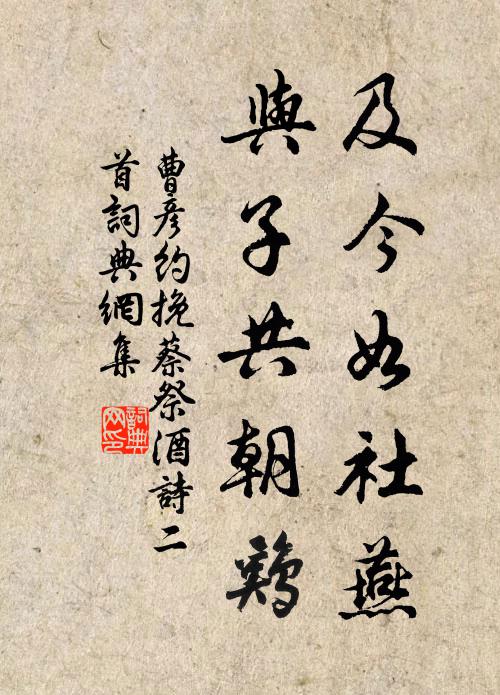 及今如社燕
與子共朝鷄
曹彥約挽蔡祭酒詩二
首詞典網集
詞典
网印